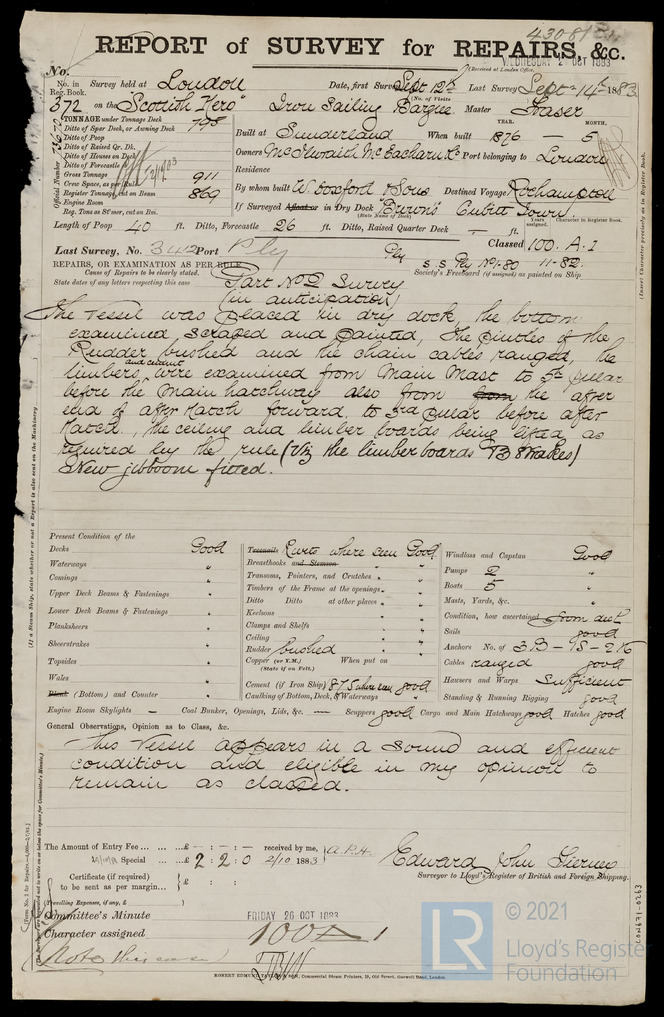 43081
REPORT of SURVEY for REPAIRS, &c.
No.
(Received at London Office,
WEDNESDAY 2 OCT 1883
No. in Reg. Book. Survey held at London Date, first Survey Sept 12th Last Survey Sept 14th 1883
(No. of Visits
372 on the "Scottish Hero" Iron Sailing Barque Master Fraser
TONNAGE under Tonnage Deck 798
Ditto of Spar Deck, or Awning Deck
Ditto of Poop
Ditto of Raised Qr. Dk.
Ditto of Houses on Deck
Ditto of Forecastle
Gross Tonnage 911
Crew Space, as per Rule
Register Tonnage, cut on Beam 869
Engine Room
Reg. Tons as St'mer, cut on Bm.
YEAR. MONTH.
Built at Sunderland When built 1876 - 5
Owners McIlwraith McEacharn & Co Port belonging to London
Residence
By whom built W. Doxford & Sons Destined Voyage Rockhampton
If Surveyed Afloat or in Dry Dock "Brown's" Cubitt Town
(State Name of Dock)
Years assigned. Character in Register Book.
Length of Poop 40 ft. Ditto, Forecastle 26 ft. Ditto, Raised Quarter Deck - ft.
Last Survey, No. 342 Port Ply
Classed 100. A.1
Ply
S S Ply No1-80 11-82
Society's Freeboard (if assigned) as painted on Ship
REPAIRS, OR EXAMINATION AS PER RULE
Cause of Repairs to be clearly stated.
State dates of any letters respecting this case
Part No 2 Survey
(in anticipation)
The Vessel was placed in dry dock, the bottom
examined scraped and painted, The pintles of the
Rudder bushed and the chain cables ranged, the
limbers and cement were examined from Main Mast to 5th pillar
before the Main hatchway also from from the after
end of after hatch forward, to 3rd pillar before after
hatch., the ceiling and limber boards being lifted as
required by the rule (Viz the limber boards & B strakes)
New jibboom fitted.
Present Condition of the
Decks Good
Waterways "
Comings "
Upper Deck Beams & Fastenings "
Lower Deck Beams & Fastenings "
Planksheers "
Sheerstrakes "
Topsides "
Wales "
(Bottom) and Counter "
Treenails Rivets where seen Good
Breasthooks and Stemson "
Transoms, Pointers, and Crutches "
Timbers of the Frame at the openings "
Ditto Ditto at other places "
Keelsons "
Clamps and Shelfs "
Ceiling "
Rudder bushed "
Copper (or Y.M.) When put on
(State if on Felt.)
Cement (if Iron Ship) where seen good
Caulking of Bottom, Deck, & Waterways "
Windlass and Capstan Good
Pumps 2 "
Boats 5 "
Masts, Yards, &c. "
Condition, how ascertained from deck
Sails good
Anchors No. of 3B - 1S - 2K
Cables ranged good
Hawsers and Warps Sufficient
Standing & Running Rigging good
Engine Room Skylights — Coal Bunker, Openings, Lids, &c. — Scuppers good Cargo and Main Hatchways good Hatches good
General Observations, Opinion as to Class, &c.
This Vessel appears in a sound and efficient
condition and eligible in my opinion to
remain as classed.
The Amount of Entry Fee ... £ - : - : - received by me, A.P.H.
Special ... £ 2 : 2 : 0 2/10 1883
Certificate (if required) to be sent as per margin... £ : :
(Travelling Expenses, if any, £ )
Edward John
Surveyor to Lloyd's Register of British and Foreign Shipping.
Committee's Minute FRIDAY 26 OCT 1883
Character assigned 100A1
Note
ROBERT EDMUND TAYLOR & SON, Commercial Steam Printers, 19, Old Street, Goswell Road, London.
LR
© 2021
Lloyd's Register
Foundation
CON671-0263
(Insert) Character precisely as in Register Book.
Official Number
(If a Steam Ship, state whether or not a Report is also sent on the Machinery